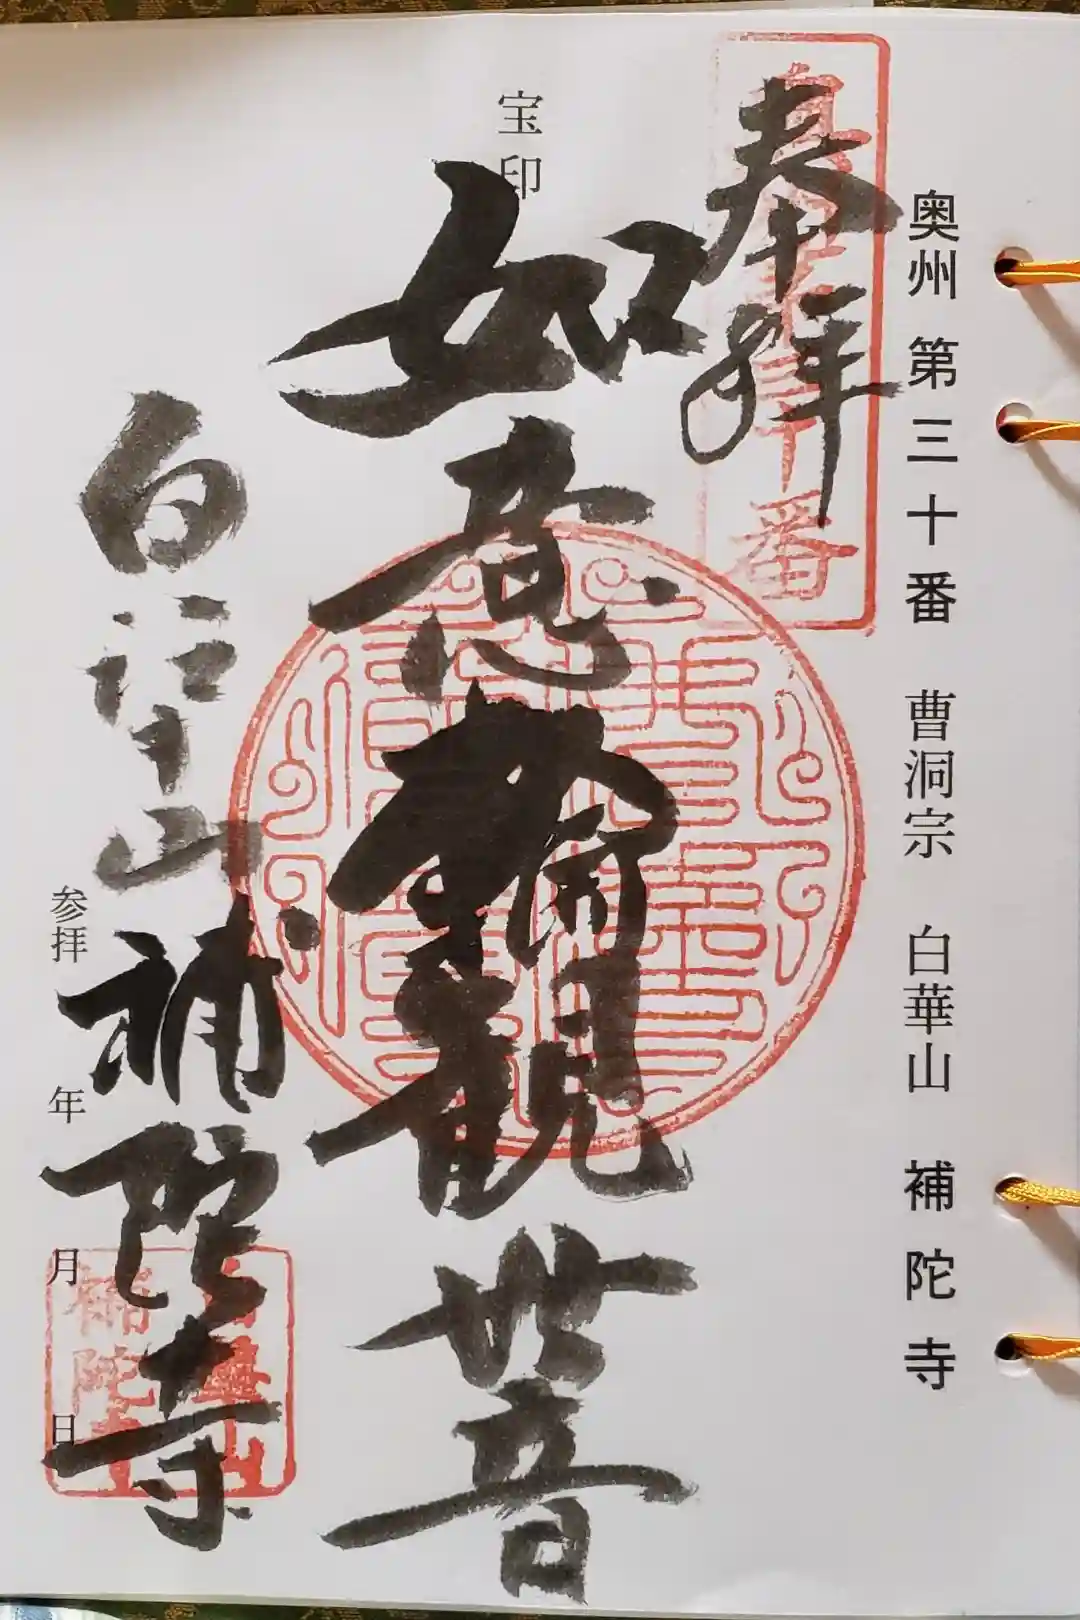 奥州第三十番 曹洞宗 白華山 補陀寺
奉拝
宝印
如意輪観世音
白華山 補陀寺
参拝 年 月 日
番
補陀